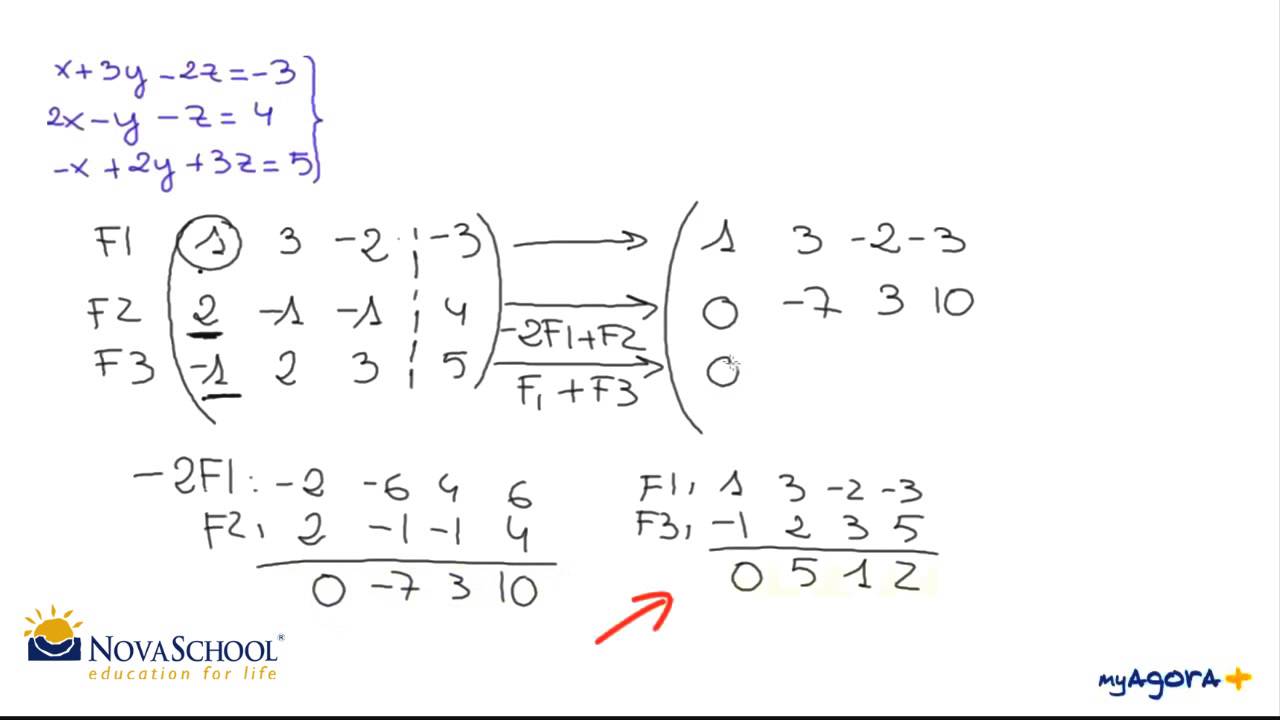 x+3y-2z=-3
2x-y-z=4
-x+2y+3z=5
F1 1 3 -2 -3 1 3 -2 -3
F2 2 -1 -1 4 -2F1+F2 0 -7 3 10
F3 -1 2 3 5 F1+F3 0
-2F1: -2 -6 4 6
F2, 2 -1 -1 4
0 -7 3 10
F1, 1 3 -2 -3
F3, -1 2 3 5
0 5 1 2
NOVASCHOOL®
education for life
myAgorA+